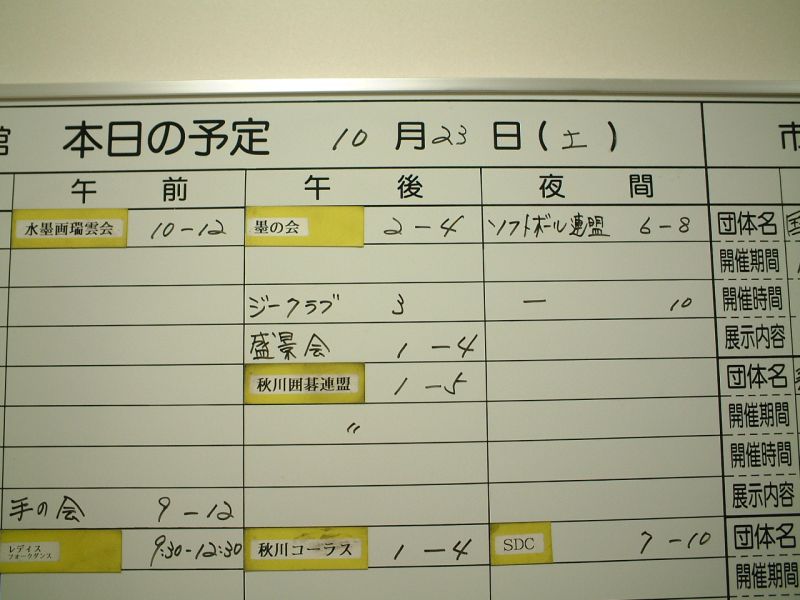 館 本日の予定 10月23日(土) 市
午前 午後 夜間
水墨画瑞雲会 10-12 墨の会 2-4 ソフトボール連盟 6-8 団体名
開催期間
ジークラブ 3 ー 10 開催時間
盛景会 1-4 展示内容
秋川囲碁連盟 1-5 団体名
〃 開催期間
開催時間
手の会 9-12 展示内容
レディス フォークダンス 9:30-12:30 秋川コーラス 1-4 SDC 7-10 団体名
開催期間